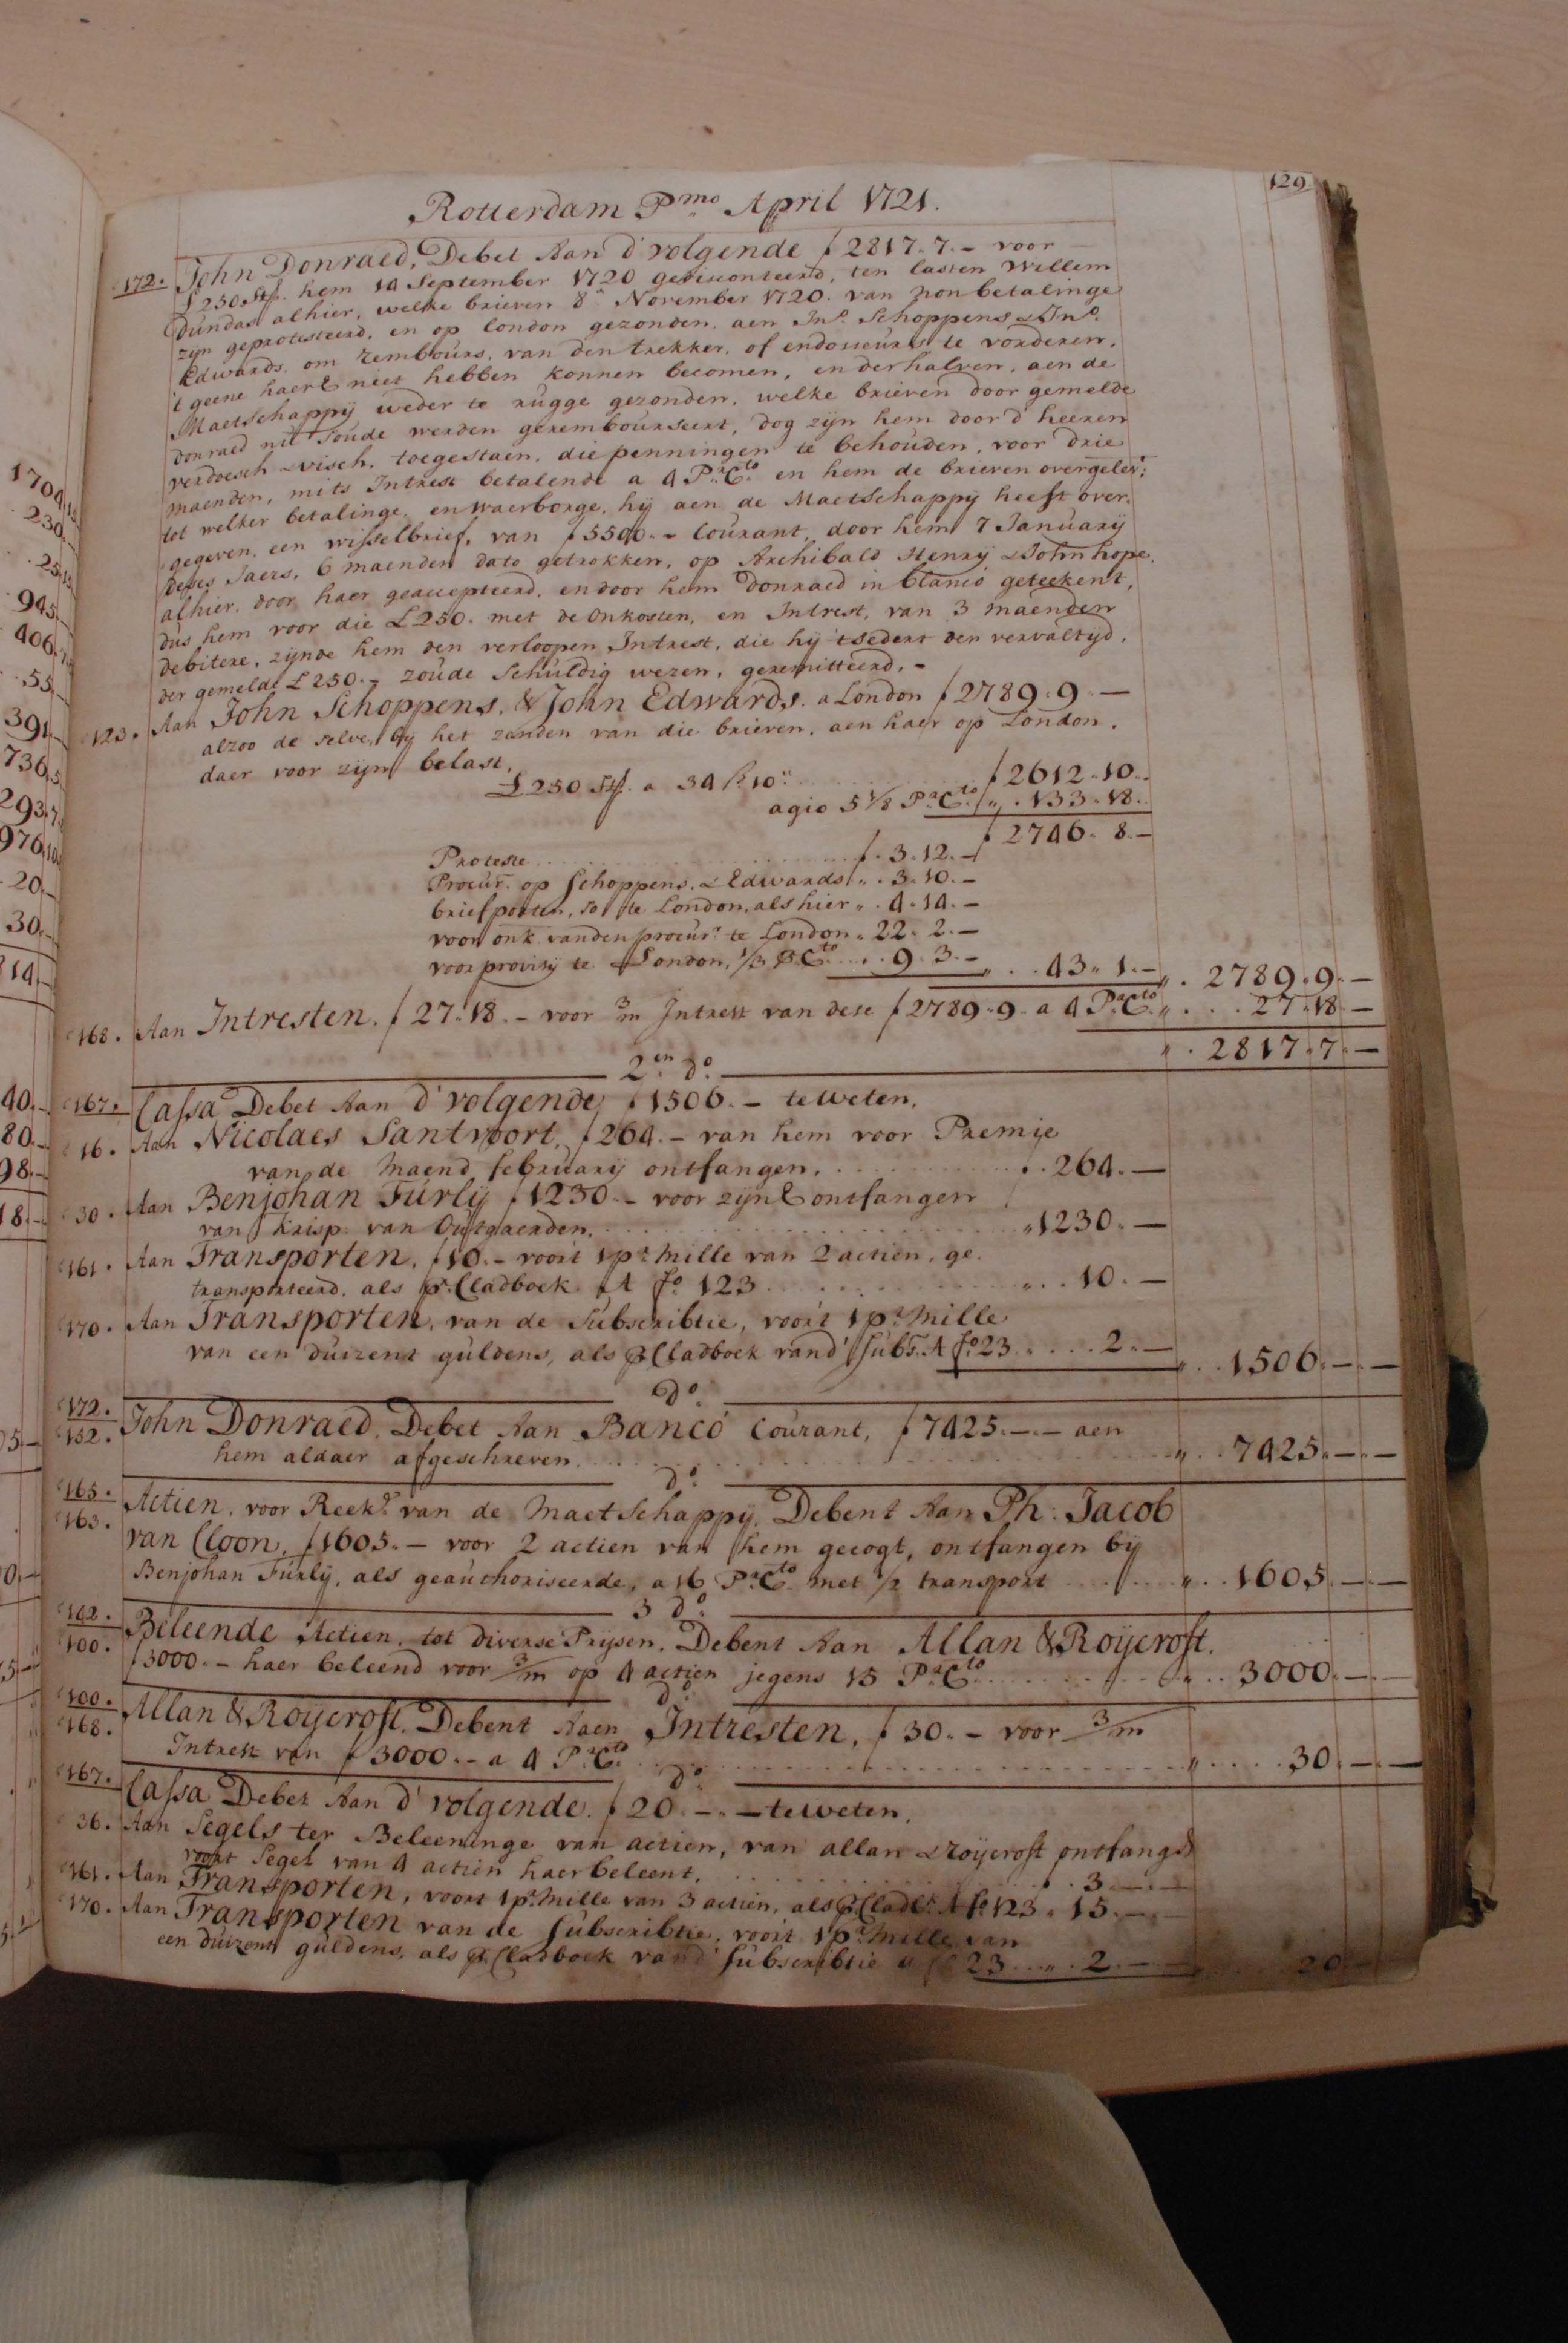 129
Rotterdam Pmo April 1721.
172. John Donraed, Debet Aan d'volgende ƒ 2817.7.– voor
£ 250 Stſ. hem 14 September 1720 gedisconteerd, ten lasten Willem
Dundas alhier, welke brieven 8n November 1720. van non betalinge
zijn geprotesteerd, en op london gezonden, aen Jno. Schoppens & Jno.
Edwards. om rembours, van den trekker, of endosseurs te vorderen,
't geene haer E niet hebben konnen becomen, en derhalven, aen de
Maetschappij weder te rugge gezonden, welke brieven door gemelde
donraed nú soude werden gerembourseert, dog zijn hem door d'heeren
verdoesch & visch, toegestaen, die penningen te behouden, voor drie
maenden, mits Intrest betalende a 4 Pr. Cto. en hem de brieven overgelev:
tot welker betalinge, en waerborge, hij aen de Maetschappij heeft over.
gegeven, een wisselbrief, van ƒ 5500.– Courant, door hem 7 January
deses Jaers, 6 maenden dato getrokken, op Archibald Henry & John hope.
alhier, door haer geaccepteerd, en door hem Donraed in blanco geteekent,
dus hem voor die £ 250. met de onkosten, en Intrest, van 3 maenden
debitere, zijnde hem den verloopen Intrest, die hij 't sedert den vervaltijd,
der gemelde £ 250.– zoude schuldig wezen, geremitteerd. –
123. Aan John Schoppens, & John Edwards. a London ƒ 2789.9.–
alzoo de selve, bij het zenden van die brieven, aen haer op London,
daer voor zijn belast,
£ 250 Stſ. a 34 ß 10 .. ƒ 2612.10..
agio 5 1/8 Pr. Cto. „ . 133.18..
ƒ 2746.8.–
Proteste ... ƒ. 3.12.–
Procur. op Schoppens. & Edwards „. 3.10.–
briefporten, so te London, als hier „. 4.14.–
voor onk. van den procur. te London „ 22.2.–
voor provisij te London, 1/3 Pr. Cto. ... 9.3.– „ . . 43.1.– „ . 2789.9.–
168. Aan Intresten, ƒ 27.18.– voor 3/m Intrest van dese ƒ 2789.9 a 4 Pr. Cto. „ ... 27.18.–
„ . 2817.7.–
2en do.
167. Cassa Debet Aan d'volgende ƒ 1506.– te weten,
16. Aan Nicolaes Santvoort, ƒ 264.– van hem voor Premie
van de maend february ontfangen, ... ƒ. 264.–
30. Aan Benjohan Fúrlij ƒ 1230.– voor zijn E ontfangen
van Krisp. van Outgaerden, ... „ 1230.–
161. Aan Transporten, ƒ 10.– voor 't 1 pr. mille van 2 actien, ge.
transporteerd, als pr. Cladboek A fo. 123 ... „ . . 10.–
170. Aan Transporten, van de Súbscribtie, voor 't 1 pr. mille
van een duizent gúldens, als pr. Cladboek van d'Súbs. A fo. 23 .... 2.– „ . . 1506.–.–
do.
172. John Donraed, Debet Aan Banco Coúrant, ƒ 7425.–.– aen
152. hem aldaer afgeschreven, ... „ . . 7425.–.–
do.
165. Actien, voor Reekg. van de Maetschappy, Debent Aan Ph: Jacob
163. van Cloon, ƒ 1605.– voor 2 actien van hem gecogt, ontfangen bij
Benjohan Fúrlij, als geaúthoriseerde, a 16 Pr. Cto. met 1/2 transport ... „ . . 1605.–.–
3 do.
142. Beleende Actien, tot diverse Prijsen, Debent Aan Allan & Roijcroft.
100. ƒ 3000.– haer beleend voor 3/m op 4 actien jegens 15 Pr. Cto. ... „ . . 3000.–.–
do.
100. Allan & Roijcroft, Debent Aaen Intresten, ƒ 30.– voor 3/m
168. Intrest van ƒ 3000.– a 4 Pr. Cto. ... „ .... 30.–.–
do.
167. Cassa Debet Aan d'volgende. ƒ 20.–.– te weten,
36. Aan Segels ter Beleeninge van actien, van allan & roijcroft ontfangd
voor 't Segel van 4 actien haer beleent, ... 3.–.–
161. Aan Transporten, voor 't 1 pr. mille van 3 actien, als pr. Cladb. A fo. 123 „ 15.–.–
170. Aan Transporten van de Súbscribtie, voor 't 1 pr. mille van
een duizent gúldens, als pr. Cladboek van d'Súbscribtie a fo. 23 ... „ . 2.–.– 20.–